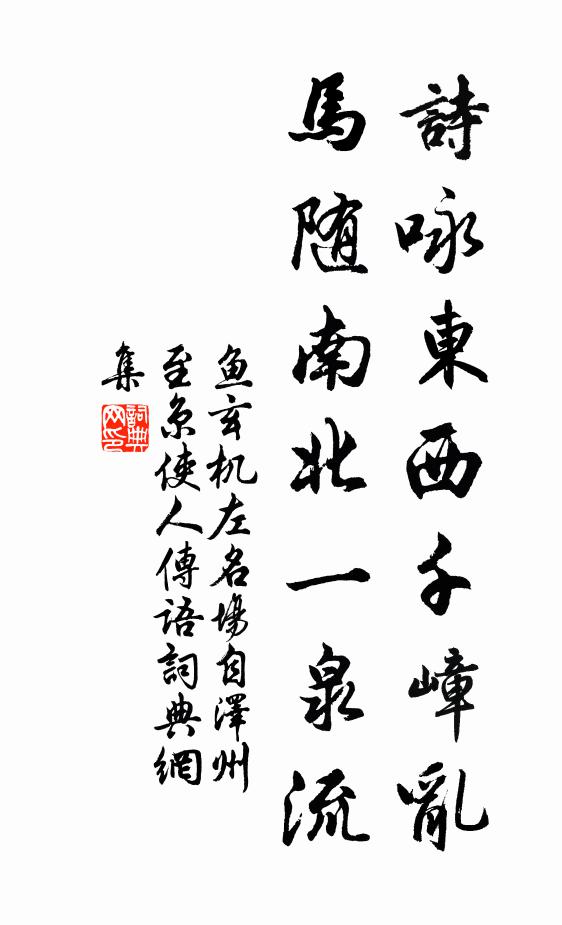 詩咏東西千嶂亂
馬随南北一泉流
鱼玄机左名場自澤州
至京使人傳語詞典網
集
詞典
网印